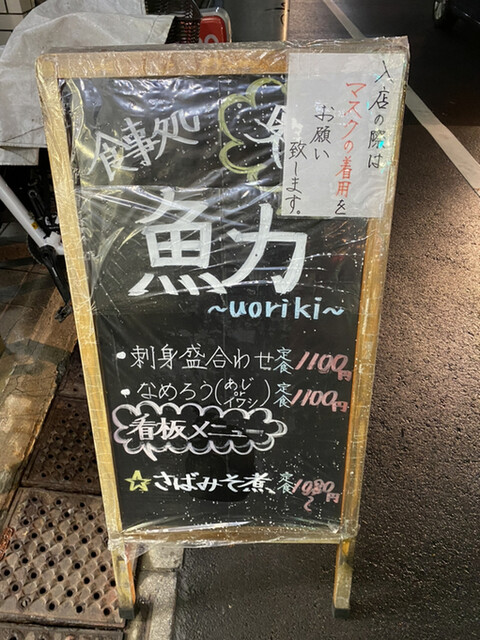 入店の際は
マスクの着用を
お願い
致します。
食事処
魚力
~uoriki~
・刺身盛合わせ定食 1100円
・なめろう(あじorイワシ)定食 1100円
看板メニュー
☆さばみそ煮定食 1080円~